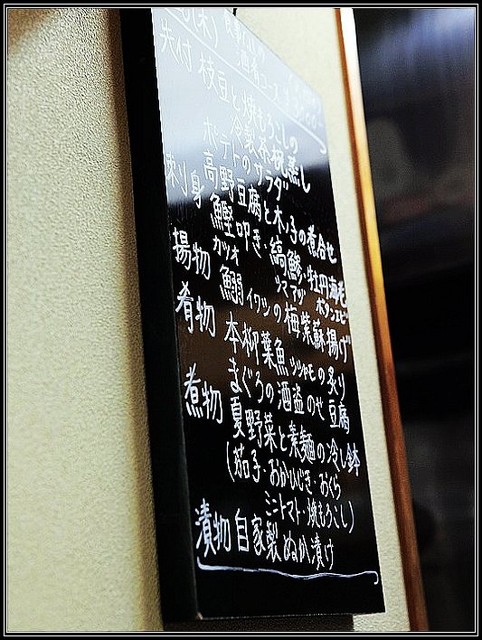 先付 枝豆と焼もろこしの
冷製茶碗蒸し
ポテトのサラダ
高野豆腐と木ノ子の煮合せ
刺り身 鰹叩き・縞鯵・牡丹海老
カツオ シマアジ ボタンエビ
揚物 鰯イワシの梅紫蘇揚げ
肴物 本柳葉魚シシャモの炙り
まぐろの酒盗のせ豆腐
煮物 夏野菜と素麺の冷し鉢
(茄子・おかひじき・おくら
ミニトマト・焼もろこし)
漬物 自家製ぬか漬け